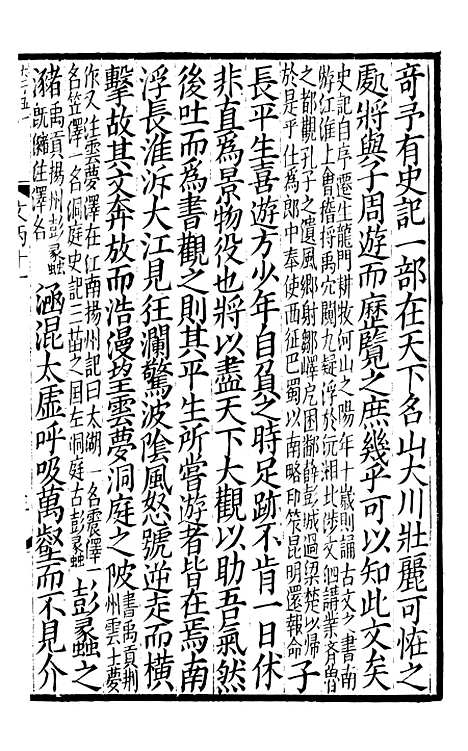 奇予有史記一部在天下名山大川壯麗可怪之
處將與子周遊而歷覽之庶幾乎可以知此文矣
史記自序遷生龍門耕牧河山之陽年十歲則誦古文之書南
游江淮上會稽將禹穴闚九疑浮於沅湘北涉汶泗講業齊魯
之都觀孔子之遺風鄉射鄒嶧戹困鄱薛彭城過梁楚以歸
於是仕爲郎中奉使西征巴蜀以南略卭筰昆明還報命
子
長平生喜遊方少年自負之時足跡不肯一日休
非直爲景物役也將以盡天下大觀以助吾氣然
後吐而爲書觀之則其平生所嘗遊者皆在焉南
浮長淮泝大江見狂瀾驚波陰風怒號逆走而橫
擊故其文奔放而浩漫望雲夢洞庭之陂
書禹貢荆
州雲土夢
作乂注雲夢澤在江南揚州記曰太湖一名震澤一
名笠澤一名洞庭史記三苗之國左洞庭右彭蠡
彭蠡之
瀦
禹貢揚州彭蠡
既瀦注澤名
涵混太虛呼吸萬壑而不見介